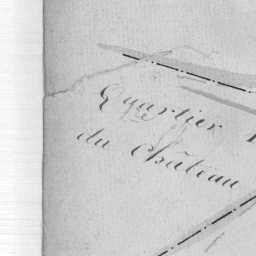 Quartier
du Château